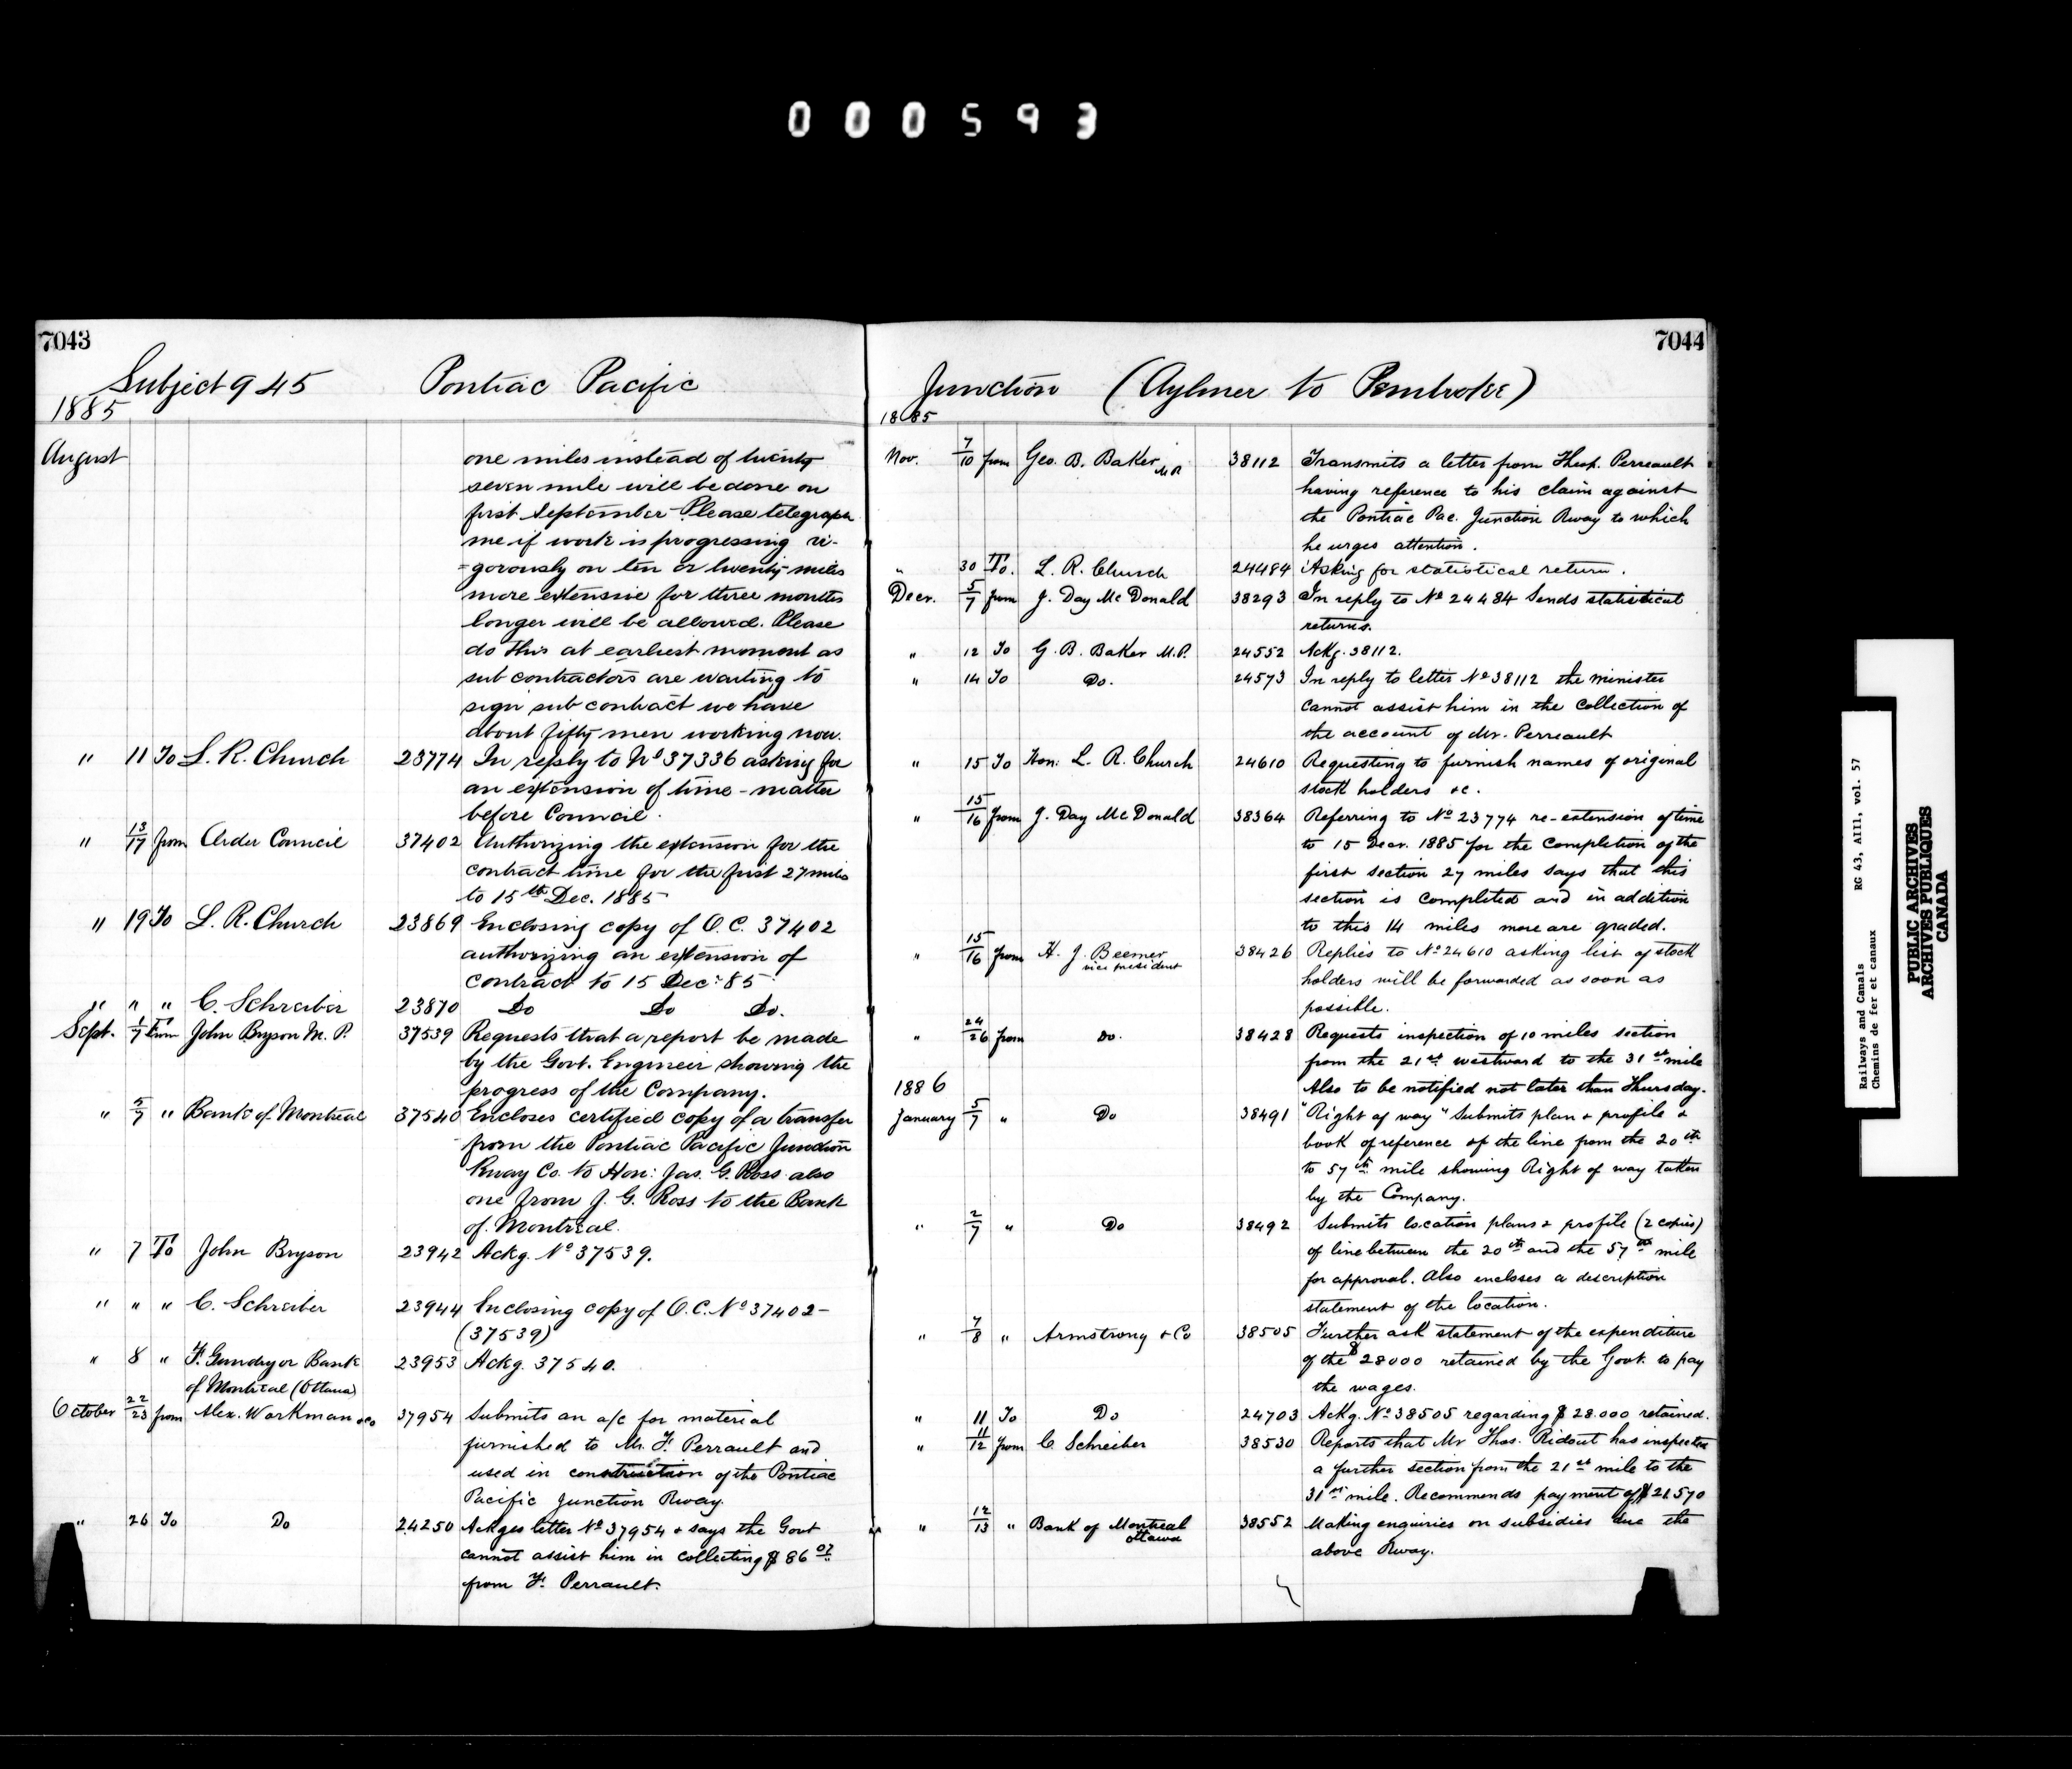 000593
7043
Subject 945 Pontiac Pacific
1885
August
one miles instead of twenty
seven mile will be done on
first September Please telegraph
me if work is progressing vi-
-gorously on ten or twenty miles
more extensive for three months
longer will be allowed. Please
do this at earliest moment as
sub contractors are waiting to
sign sub contract we have
about fifty men working now.
" 11 To L. R. Church 23774 In reply to No 37336 asking for
an extension of time - matter
before Council.
" 13/17 from Order Council 37402 Authorizing the extension for the
contract time for the first 27 miles
to 15th Dec. 1885
" 19 To L. R. Church 23869 Enclosing copy of O.C. 37402
authorizing an extension of
contract to 15 Dec: 85
" " " C. Schreiber 23870 Do Do Do.
Sept. 1/7 from John Bryson M. P. 37539 Requests that a report be made
by the Govt. Engineer showing the
progress of the Company.
" 5/7 " Bank of Montreal 37540 Encloses certified copy of a transfer
from the Pontiac Pacific Junction
Rway Co. to Hon: Jas. G. Ross also
one from J. G. Ross to the Bank
of Montreal.
" 7 To John Bryson 23942 Ackg. No 37539.
" " " C. Schreiber 23944 Enclosing copy of O.C. No 37402-
(37539)
" 8 " F. Gundry or Bank 23953 Ackg. 37540.
of Montreal (Ottawa)
October 22/23 from Alex. Workman & Co 37954 Submits an a/c for material
furnished to Mr. F. Perrault and
used in construction of the Pontiac
Pacific Junction Rway.
" 26 To Do 24250 Ackges letter No 37954 & says the Govt
cannot assist him in collecting $86 07
from F. Perrault.
7044
Junction (Aylmer to Pembroke)
1885
Nov. 7/10 from Geo. B. Baker M.P. 38112 Transmits a letter from Theop. Perreault
having reference to his claim against
the Pontiac Pac. Junction Rway to which
he urges attention.
" 30 To. L. R. Church 24484 Asking for statistical return.
Decr. 5/7 from J. Day McDonald 38293 In reply to No 24484 Sends statistical
returns.
" 12 To G. B. Baker M.P. 24552 Ackg. 38112.
" 14 To Do. 24573 In reply to letter No 38112 the minister
cannot assist him in the collection of
the account of Mr. Perreault
" 15 To Hon: L. R. Church 24610 Requesting to furnish names of original
stock holders &c.
" 15/16 from J. Day McDonald 38364 Referring to No 23774 re-extension of time
to 15 Decr. 1885 for the completion of the
first section 27 miles says that this
section is completed and in addition
to this 14 miles more are graded.
" 15/16 from H. J. Beemer 38426 Replies to No 24610 asking list of stock
vice president
holders will be forwarded as soon as
possible.
" 24/26 from Do. 38428 Requests inspection of 10 miles section
from the 21st westward to the 31st mile
1886
Also to be notified not later than Thursday.
January 5/7 " Do 38491 "Right of way" Submits plan & profile &
book of reference of the line from the 20th
to 57th mile showing Right of way taken
by the Company.
" 2/7 " Do 38492 Submits location plans & profile (2 copies)
of line between the 20th and the 57th mile
for approval. Also encloses a description
statement of the location.
" 7/8 " Armstrong & Co 38505 Further ask statement of the expenditure
of the $28000 retained by the Govt. to pay
the wages.
" 11 To Do 24703 Ackg. No 38505 regarding $28.000 retained.
" 11/12 from C. Schreiber 38530 Reports that Mr Thos. Ridout has inspected
a further section from the 21st mile to the
31st mile. Recommends payment of $21570
" 12/13 " Bank of Montreal 38552 Making enquiries on subsidies due the
Ottawa
above Rway.
Railways and Canals RG 43, AIII, vol. 57
Chemins de fer et canaux
PUBLIC ARCHIVES
ARCHIVES PUBLIQUES
CANADA